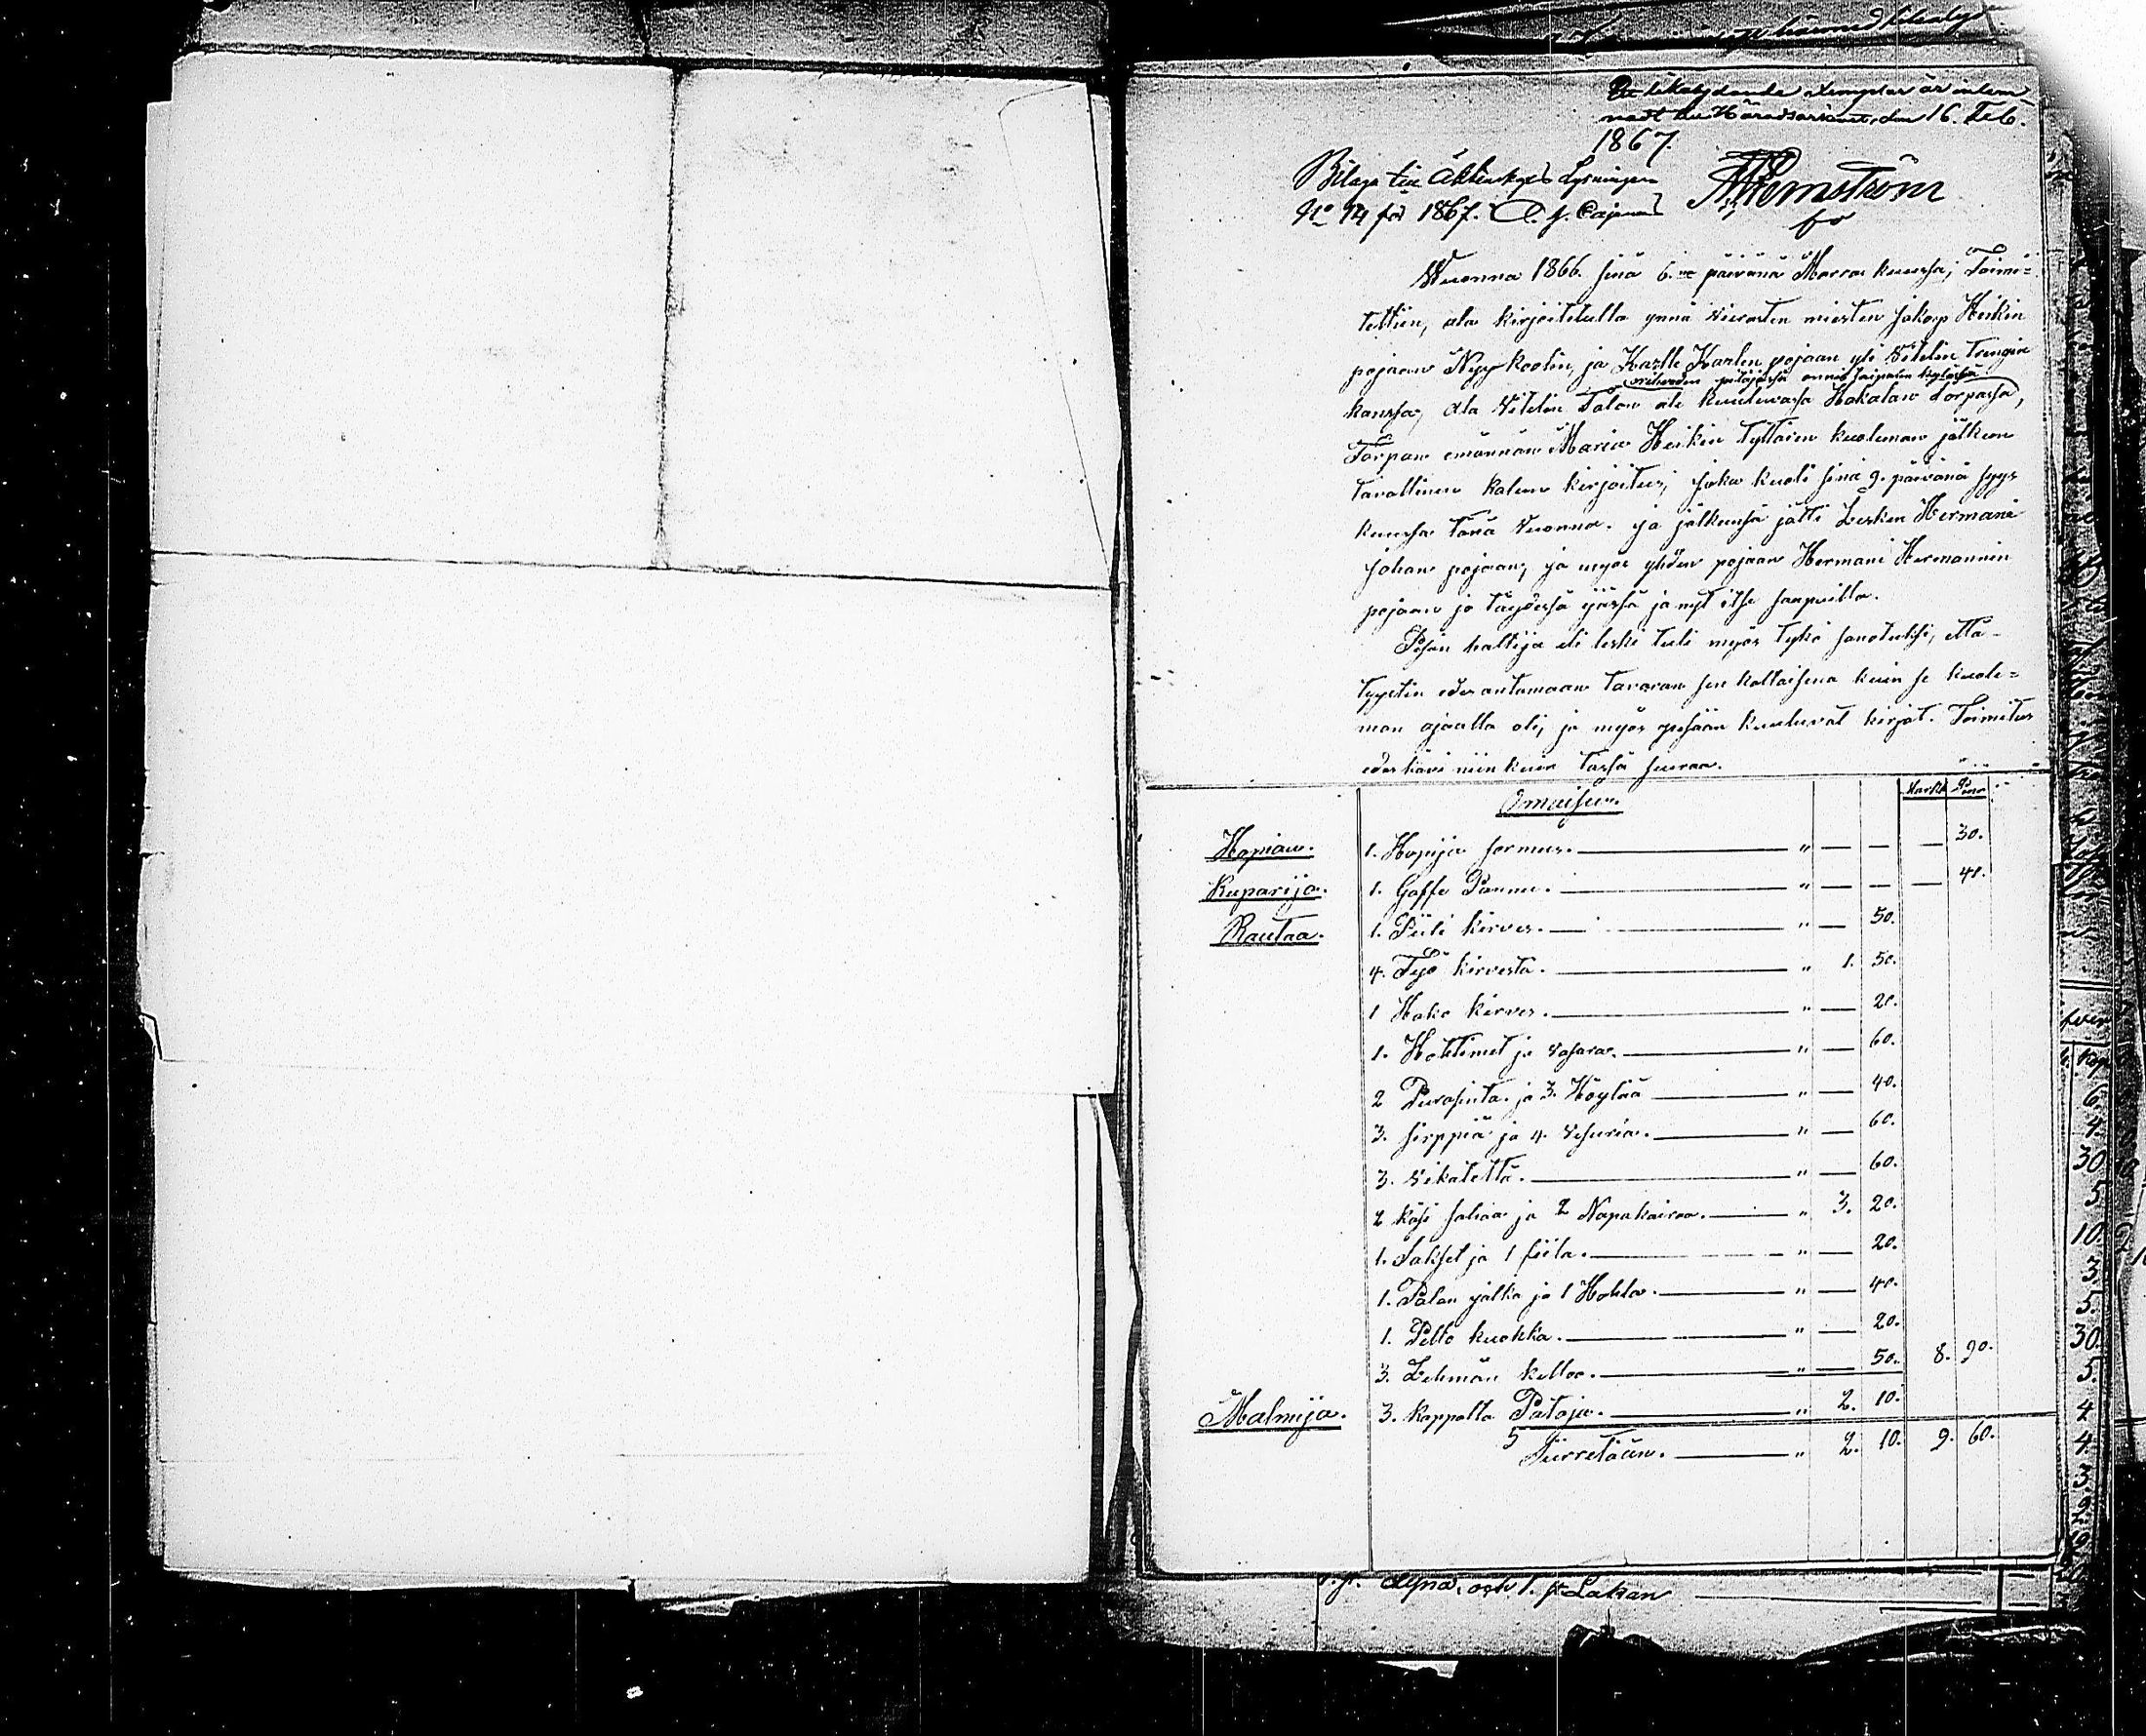 likalydande exemplar är inlem-
nadt till Häradsarkivet, den 16. Feb.
1867.
Bilaga till Äktenskaps Lysningen
No 14 för 1867.
Wuonna 1866. sinä 6.na päivänä Marras kuussa, Toimi=
tettiin, ala kirjoitetulta ynnä vierasten miesten Jakop Heikin
pojaan Nyykoolin, ja Kaarlle Kaarlen pojaan yli Vitelin Trengin
pitäjässä kylässä
kanssa, ala Vitelin Talon ale kuuluvassa Hakalan torpassa,
Torpan emännän Maria Heikin Tyttären kuoleman jälkeen
tavallinen kalun kirjoitus, joka kuoli sinä 9. päivänä syys
kuussa tänä vuonna. ja jälkeensä jätti Lesken Hermani
Johan pojaan, ja myös yhden pojaan Hermani Hermannin
pojaan jo täydessä ijässä ja nyt itse saapuilla.
Pesän haltija eli leski tuli myös tykö sanotuksi, että-
edes antamaan tavaran sen kaltaisena kuin se kuole=
man ajaalla oli, ja myös pesään kuuluvat kirjat. Toimitus
edes kävi niin kuin tässä seuraa.
Omaisus. Markk Penn
Hopiaa. 1. Hopija sormus. " — — — 30.
Kuparija. 1. Gaffe Pannu. " — — — 40.
Rautaa. 1. Piili kirves. " — 50.
4. Työ kirvestä. " 1. 50.
1 Hako kirves. " — 20.
1. Hohtimet ja vasara. " — 60.
2 Purasinta. ja 3. Höylää " — 40.
3. sirppiä ja 4. vesuria. " — 60.
3. Vikatetta. " — 60.
2 käsi sahaa ja 2 Napakairaa. " 3. 20.
1. Sakset ja 1 fiila. " — 20.
1. Palan jalka ja 1 Hohla. " — 40.
1. Pelto kuokka. " — 20.
3. Lehmän kelloa. " — 50. 8. 90.
Malmija. 3. kappalta Pataja. " 2. 10.
Siirretään. " 2. 10. 9. 60.